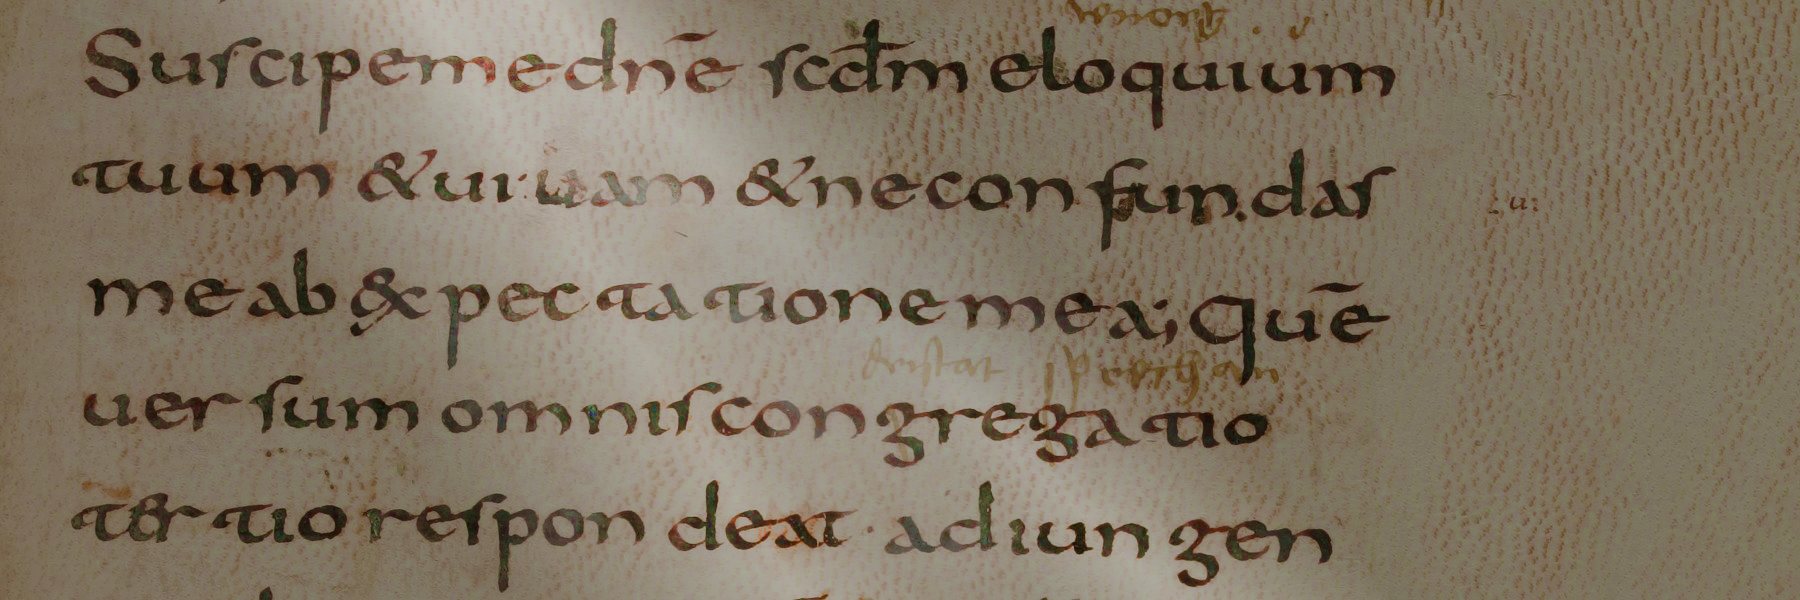 Suscipe me dnē scdm eloquium
tuum & uiuam & ne confundas
me ab &pectatione mea; Quē
uersum omnis congregatio
tertio respondeat adiungen